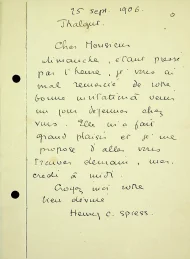 25 sept. 1906.
Cher Monsieur
dimanche, étant pressé
par l'heure, je vous ai
mal remercié de votre
bonne invitation à venir
un jour déjeuner chez
vous. Elle m'a fait
grand plaisir et je me
propose d'aller vous
trouver demain, mer-
credi à midi.
Croyez moi votre
bien dévoué
Henry C. Spiess.